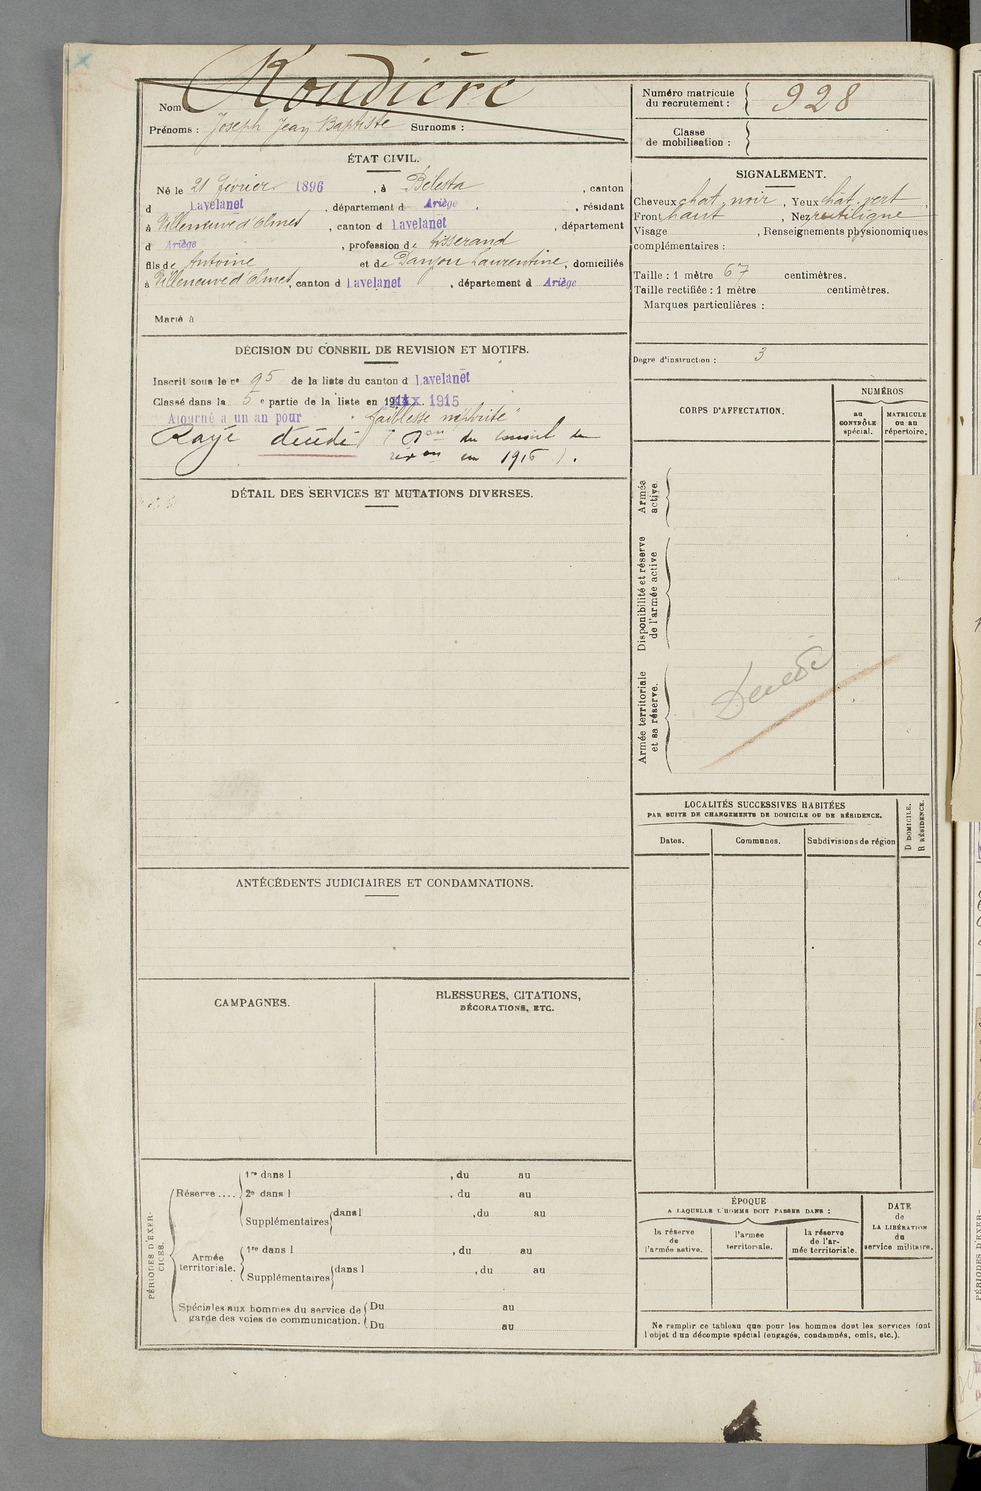 Nom Roudière
Prénoms : Joseph Jean Baptiste Surnoms :
Numéro matricule du recrutement : 928
Classe de mobilisation :
ÉTAT CIVIL.
Né le 21 février 1896, à Bélesta, canton
d Lavelanet, département d Ariège, résidant
à Villeneuve d'Olmes, canton d Lavelanet, département
d Ariège, profession de tisserand
fils de Antoine et de Danjou Laurentine, domiciliés
à Villeneuve d'Olmes, canton d Lavelanet, département d Ariège
Marié à
SIGNALEMENT.
Cheveux chat noir, Yeux chât vert,
Front haut, Nez rectiligne
Visage , Renseignements physionomiques
complémentaires :
Taille : 1 mètre 67 centimètres.
Taille rectifiée : 1 mètre centimètres.
Marques particulières :
Degré d'instruction : 3
DÉCISION DU CONSEIL DE REVISION ET MOTIFS.
Inscrit sous le n° 95 de la liste du canton d Lavelanet
Classé dans la 5 e partie de la liste en 1915
Ajourné à un an pour "faiblesse
Rayé décédé ( Don du conseil de
rev on en 1916 ).
DÉTAIL DES SERVICES ET MUTATIONS DIVERSES.
CORPS D'AFFECTATION.
NUMÉROS
au CONTRÔLE spécial.
MATRICULE ou au répertoire.
Armée active
Disponibilité et réserve de l'armée active
Armée territoriale et sa réserve.
Décédé
LOCALITÉS SUCCESSIVES HABITÉES
PAR SUITE DE CHANGEMENTS DE DOMICILE OU DE RÉSIDENCE.
Dates.
Communes.
Subdivisions de région
D DOMICILE.
R RÉSIDENCE.
ANTÉCÉDENTS JUDICIAIRES ET CONDAMNATIONS.
CAMPAGNES.
BLESSURES, CITATIONS,
DÉCORATIONS, ETC.
PÉRIODES D'EXERCICES.
Réserve ....
1re dans l , du au
2e dans l , du au
Supplémentaires dans l , du au
Armée territoriale.
1re dans l , du au
Supplémentaires dans l , du au
Spéciales aux hommes du service de
garde des voies de communication.
Du au
Du au
ÉPOQUE
A LAQUELLE L'HOMME DOIT PASSER DANS :
la réserve de l'armée active.
l'armée territoriale.
la réserve de l'armée territoriale.
DATE
de
LA LIBÉRATION
du
service militaire.
Ne remplir ce tableau que pour les hommes dont les services font
l'objet d'un décompte spécial (engagés, condamnés, omis, etc.).